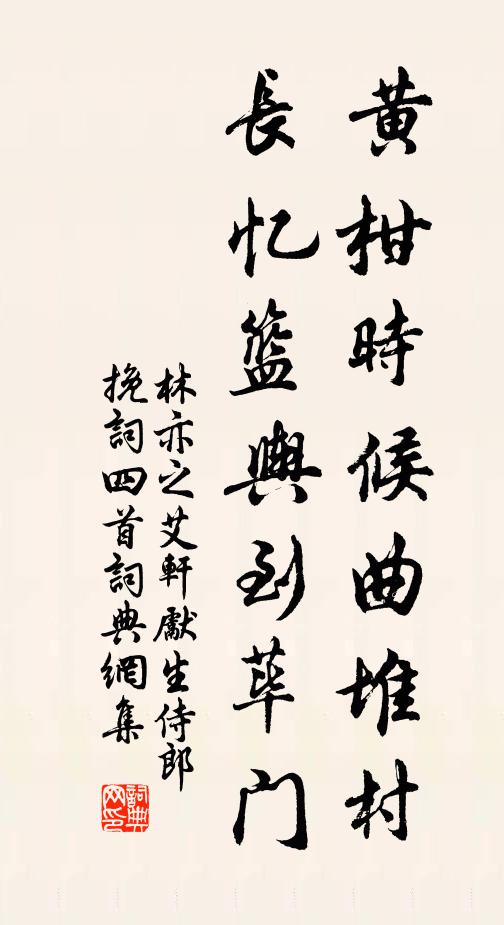 黄柑時候曲堆村
長忆籃輿到荜门
林亦之艾軒獻生侍郎
挽詞四首詞典網集
詞典
网印